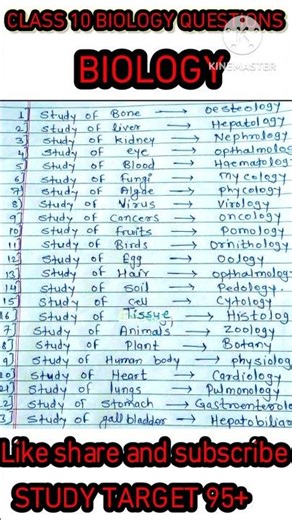 CLASS 10 BIOLOGY QUESTIONS
KINEMASTER
BIOLOGY
1] Study of Bone → Oesteology
2] Study of liver → Hepatology
3] Study of kidney → Nephrology
4] Study of eye → opthalmolog
5] Study of Blood → Haematolog
6] Study of Fungi → Mycology
7] Study of Algae → phycology
8] Study of Virus → Virology
9] Study of Cancers → oncology
10] Study of fruits → Pomology
11] Study of Birds → Ornithology
12] Study of Egg → Oology
13] Study of Hair → opthalmolog
14] Study of soil → Pedology.
15] Study of cell → Cytology
16] Study of Tissue, → Histolog
7] Study of Animals → Zoology
8] Study of Plant → Botany
9] Study of Human body → physiolog
20] Study of Heart → Cardiology
21] Study of lungs → Pulmonology
2] Study of stomach → Gastroenterolo
3] Study of gall bladder → Hepatobiliar
Like share and subscribe
STUDY TARGET 95+